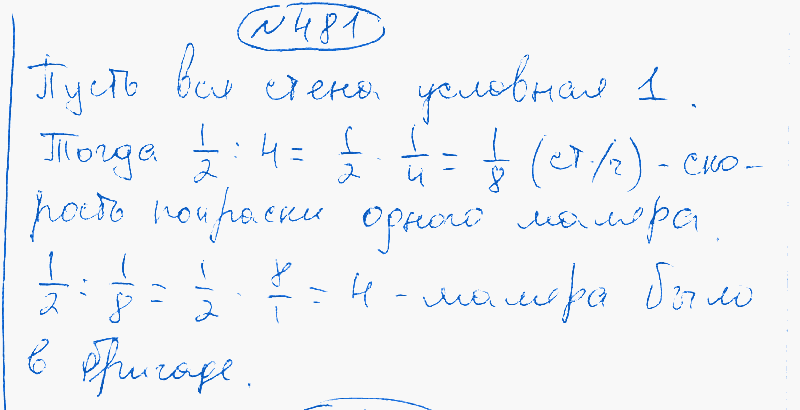 №481
Пусть вся стена условная 1.
Тогда 1/2 : 4 = 1/2 · 1/4 = 1/8 (ст./ч) - ско-
рость покраски одного маляра.
1/2 : 1/8 = 1/2 · 8/1 = 4 - маляра было
в бригаде.